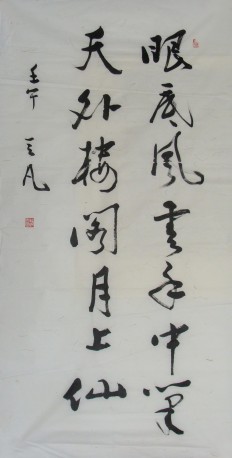 眼底風雲手中筆
天外樓閣月上仙
壬午 凡